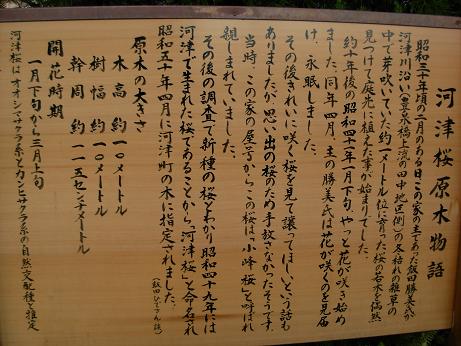 河津桜原木物語
昭和三十年頃の二月のある日この家の主であった飯田勝美氏が
河津川沿い(豊泉橋上流の田中地区側)の冬枯れの雑草の
中で芽吹いていた約一メートル位に育った桜の若木を偶然
見つけて庭先に植えた事が始まりでした。
約十年後の昭和四十一年一月下旬、やっと花が咲き始め
ました。同年四月、主の勝美氏は花が咲くのを見届
け、永眠しました。
その後きれいに咲く桜を見て譲ってほしいという話も
ありましたが思い出の桜のため手放さなかったそうです。
当時、この家の屋号からこの桜は「小峰桜」と呼ばれ
親しまれていました。
その後の調査で新種の桜とわかり昭和四十九年には
河津で生まれた桜であることから「河津桜」と命名され
昭和五十年四月に河津町の木に指定されました。
(飯田ひでさん談)
原木の大きさ
木高 約 一〇メートル
樹幅 約 一〇メートル
幹周 約 一一五センチメートル
開花時期
一月下旬から三月上旬
河津桜はオオシマザクラ系とカンヒザクラ系の自然交配種と推定